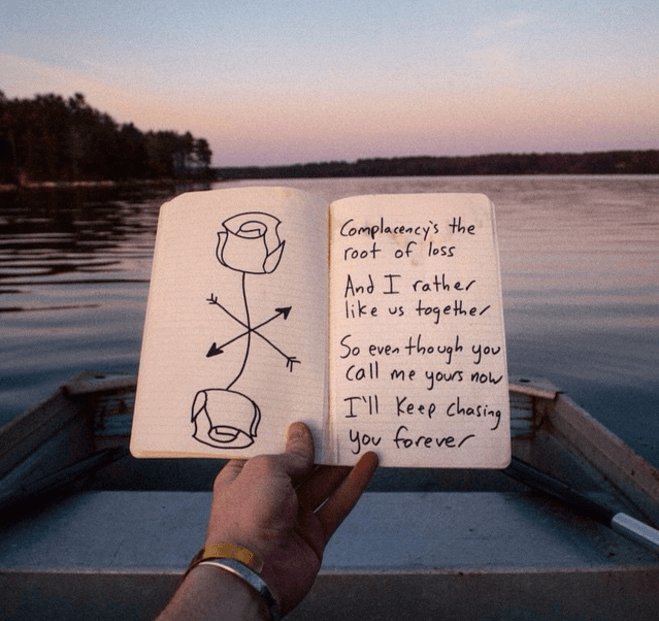 Complacency's the
root of loss
And I rather
like us together
So even though you
call me yours now
I'll keep chasing
you forever